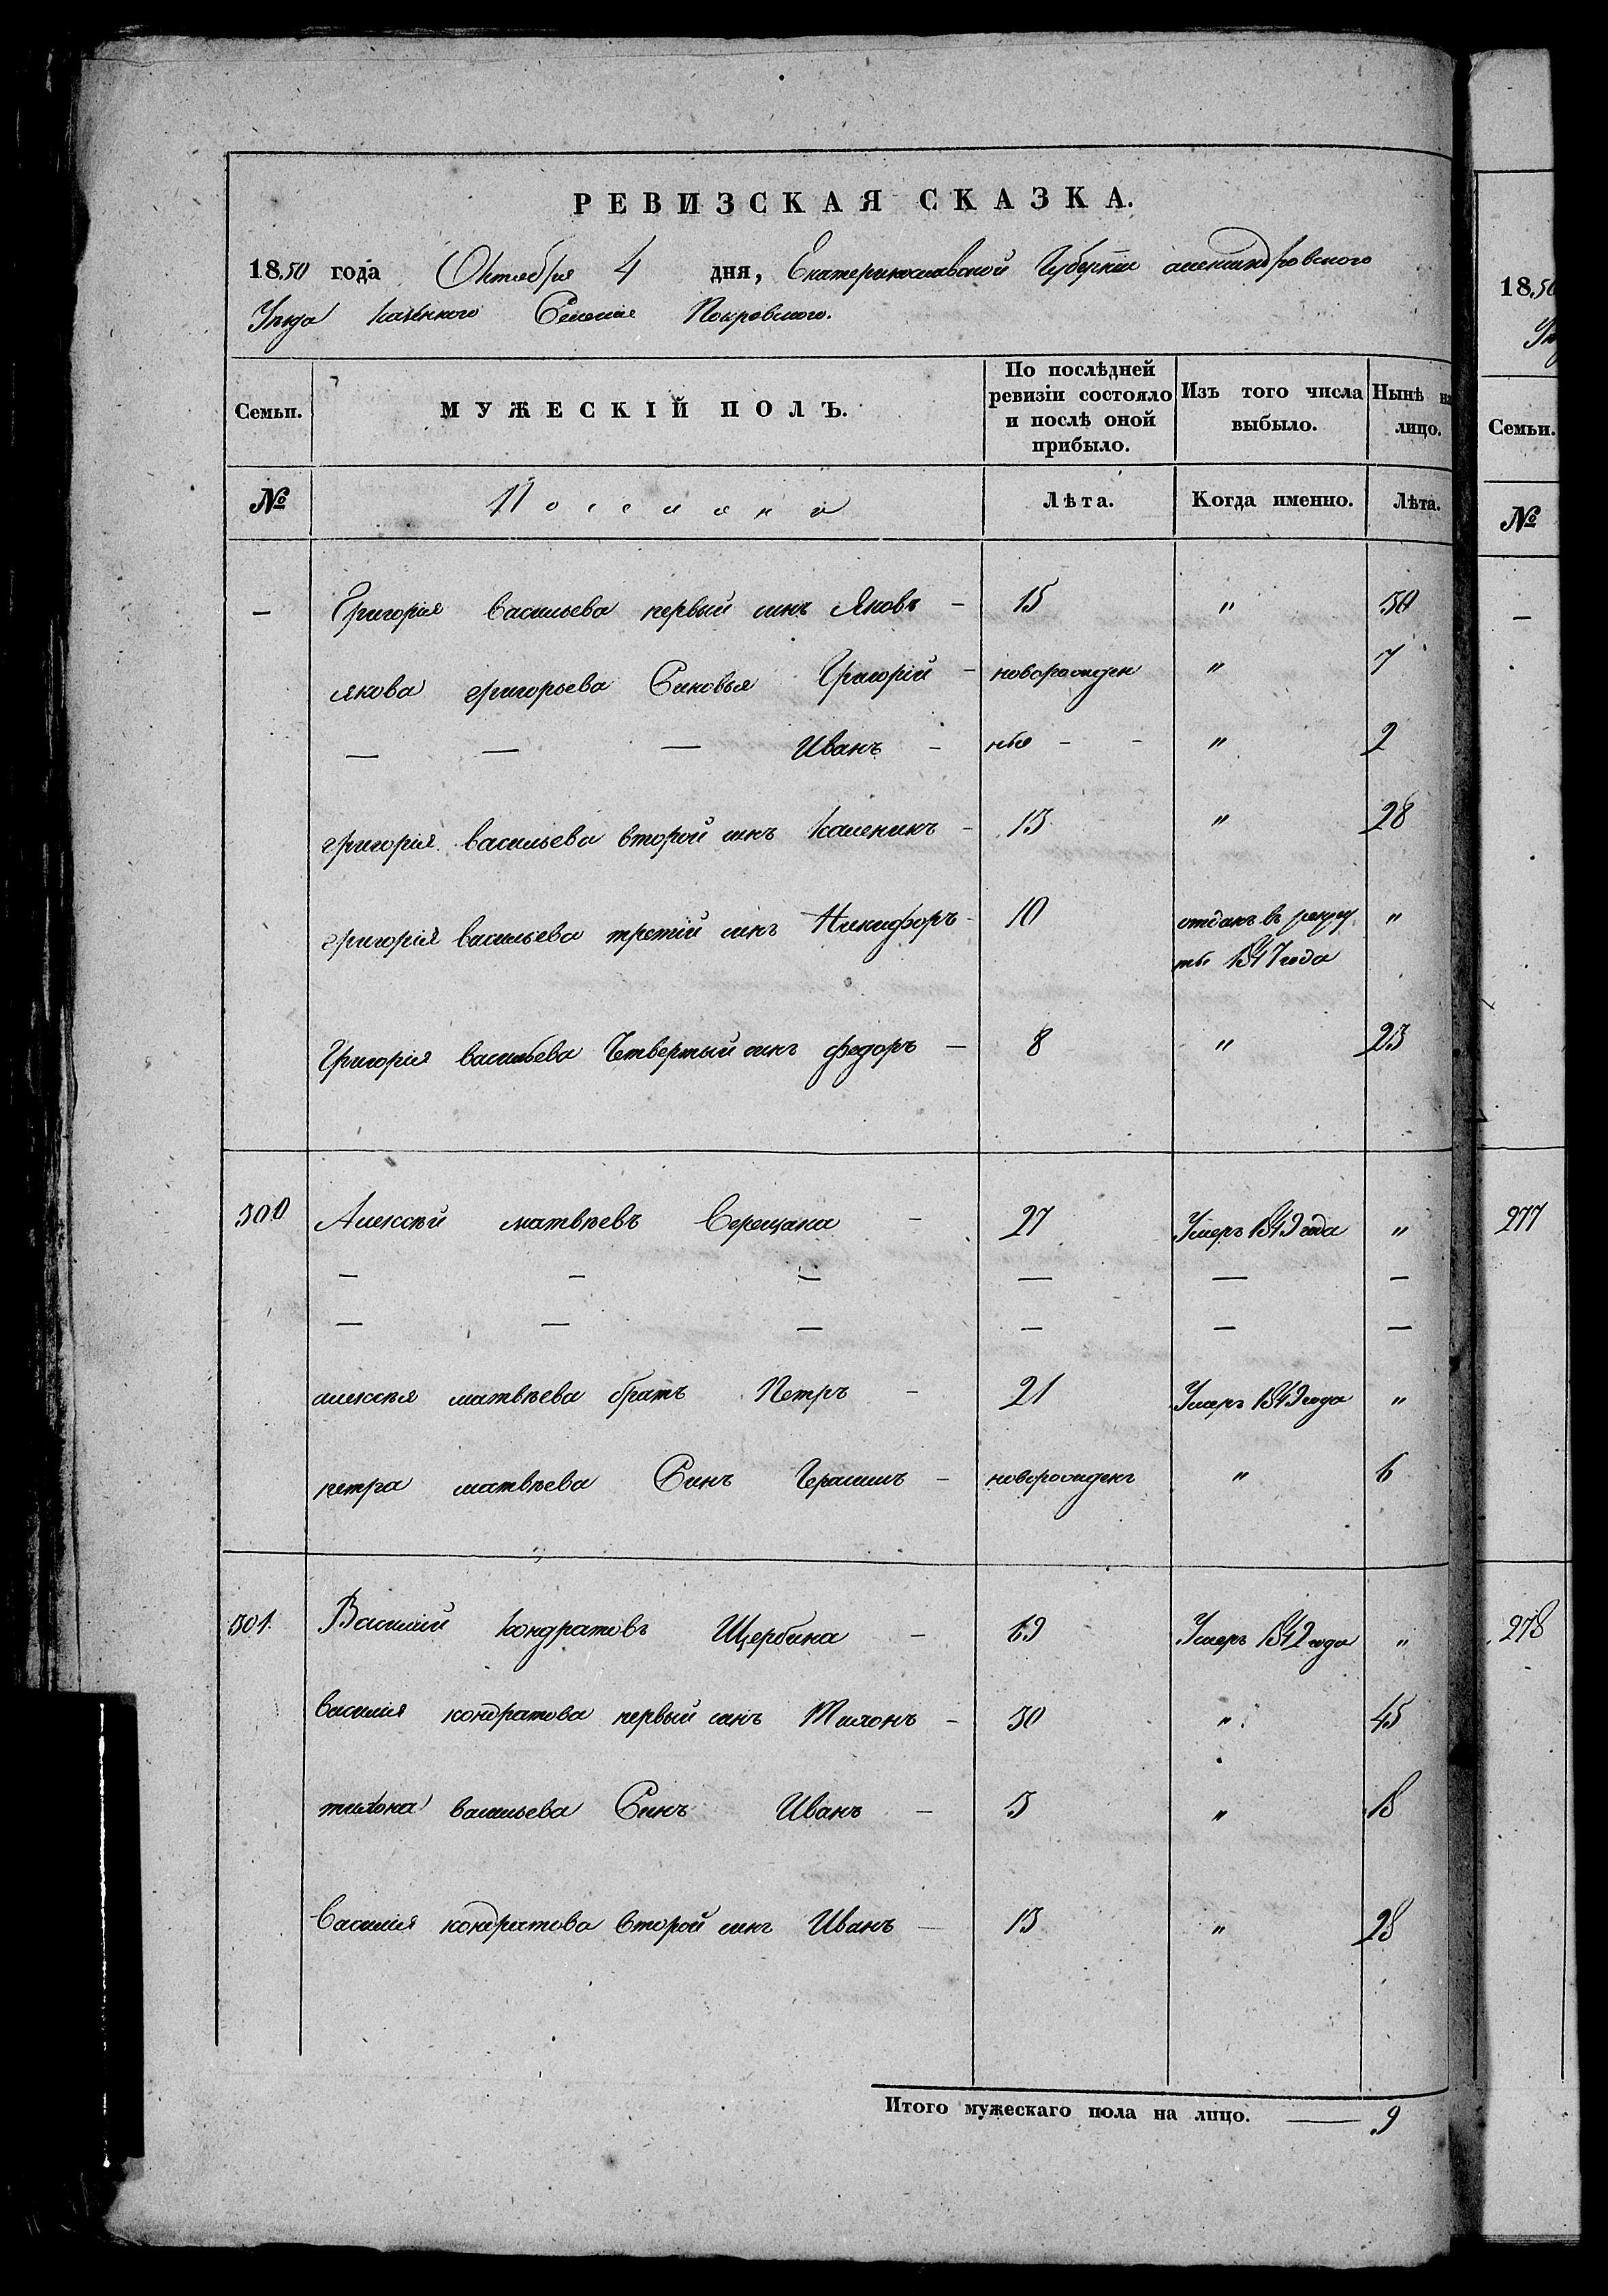 РЕВИЗСКАЯ СКАЗКА.
1850 года Октября 4 дня, Екатеринославской Губерніи александровского
Уезда казенного Селенія Покровского.
Семьи. МУЖЕСКІЙ ПОЛЪ. По послѣдней ревизіи состояло и послѣ оной прибыло. Изъ того числа выбыло. Нынѣ на лицо.
№ Поселяне Лѣта. Когда именно. Лѣта.
— Григорія Васильева первый синъ Яковъ — 15 " 30
якова григорьева Синовья Григорій — новорожден " 7
— — — Иванъ — тбо — — " 2
григорія васильева второй синъ Каленикъ — 13 " 28
григорія васильева третій синъ Никифоръ — 10 отданъ въ рекру "
ты 1847 года
Григорія васильева Четвертый синъ федоръ — 8 " 23
300 Алексѣй матвѣевъ Верещака — 27 Умеръ 1849 года "
— — — — — —
— — — — — —
алексѣя матвѣева братъ Петръ — 21 Умеръ 1849 года "
петра матвѣева Синъ Герасимъ — новорожденъ " 6
301 Василій Кондратовъ Щербина — 69 Умеръ 1842 года "
василія кондратова первый синъ Тихонъ — 30 " 45
тихона васильева Синъ Иванъ — 3 " 18
Василія кондратова второй синъ Иванъ — 13 " 28
Итого мужескаго пола на лицо. — 9
1850
Семьи.
№
—
277
278